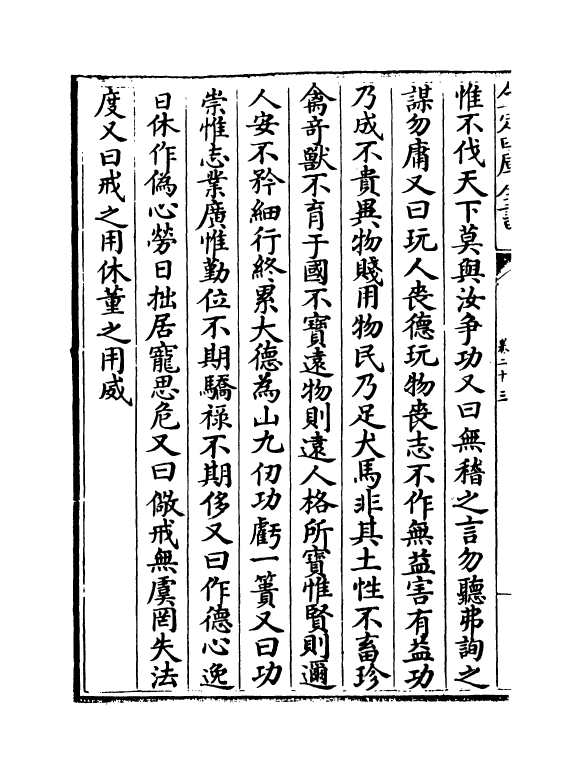 卷二十三
惟不伐天下莫與汝争功又曰無稽之言勿聽弗詢之
謀勿庸又曰玩人喪德玩物喪志不作無益害有益功
乃成不貴異物賤用物民乃足犬馬非其土性不畜珍
禽奇獸不育于國不寶遠物則遠人格所寶惟賢則邇
人安不矜細行終累大德為山九仞功虧一簣又曰功
崇惟志業廣惟勤位不期驕祿不期侈又曰作德心逸
日休作偽心勞日拙居寵思危又曰儆戒無虞罔失法
度又曰戒之用休董之用威